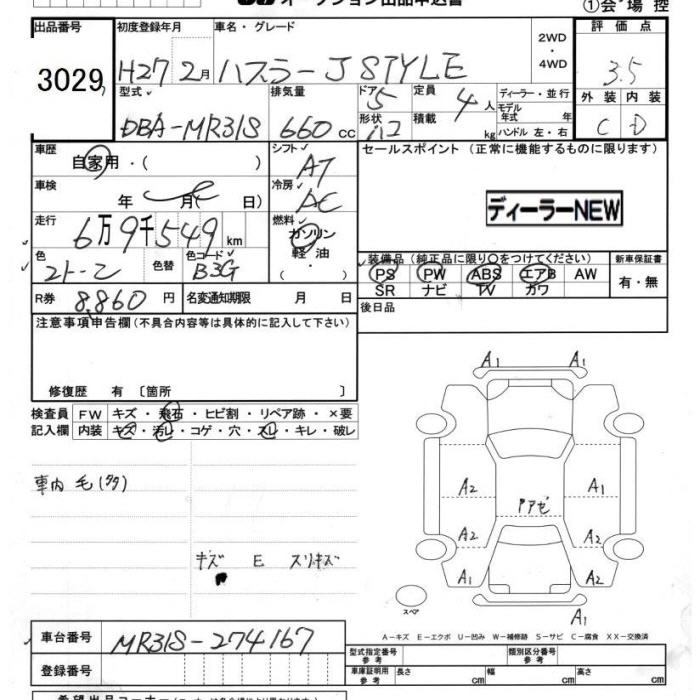 オークション出品申込書
①会場控
出品番号
3029
初度登録年月
H27 2月
車名・グレード
ハスラー J STYLE
2WD
・
4WD
評価点
3.5
型式
DBA-MR31S
排気量
660cc
ドア
5
形状
定員
4人
積載
kg
ディーラー・並行
モデル
年式 年
ハンドル 左・右
外装
C
内装
D
車歴
自家用・( )
シフト
AT
セールスポイント(正常に機能するものに限ります)
車検
年 月( )
冷房
AC
ディーラーNEW
走行
6万9千549km
燃料
ガソリン
軽油
・( )
色
色替
色コード
B3G
装備品(純正品に限り○をつけてください)
新車保証書
PS PW ABS エアB AW
有・無
SR ナビ TV カワ
R券
8,860円
名変通知期限 月 日
後日品
注意事項申告欄(不具合内容等は具体的に記入して下さい)
修復歴 有 [箇所 ]
検査員
記入欄
FW キズ・飛石・ヒビ割・リペア跡・×要
内装 キズ・汚レ・コゲ・穴・スレ・キレ・破レ
車内 毛(多)
キズ E スリキズ
A1 A1
A2 A1
アアゼ
A2 A2
A1 A2
スペア
A1
A-キズ E-エクボ U-凹み W-補修跡 S-サビ C-腐食 XX-交換済
車台番号
MR31S-274167
登録番号
型式指定番号
参考
類別区分番号
参考
車庫証明用
参考
長さ cm 幅 cm 高さ cm